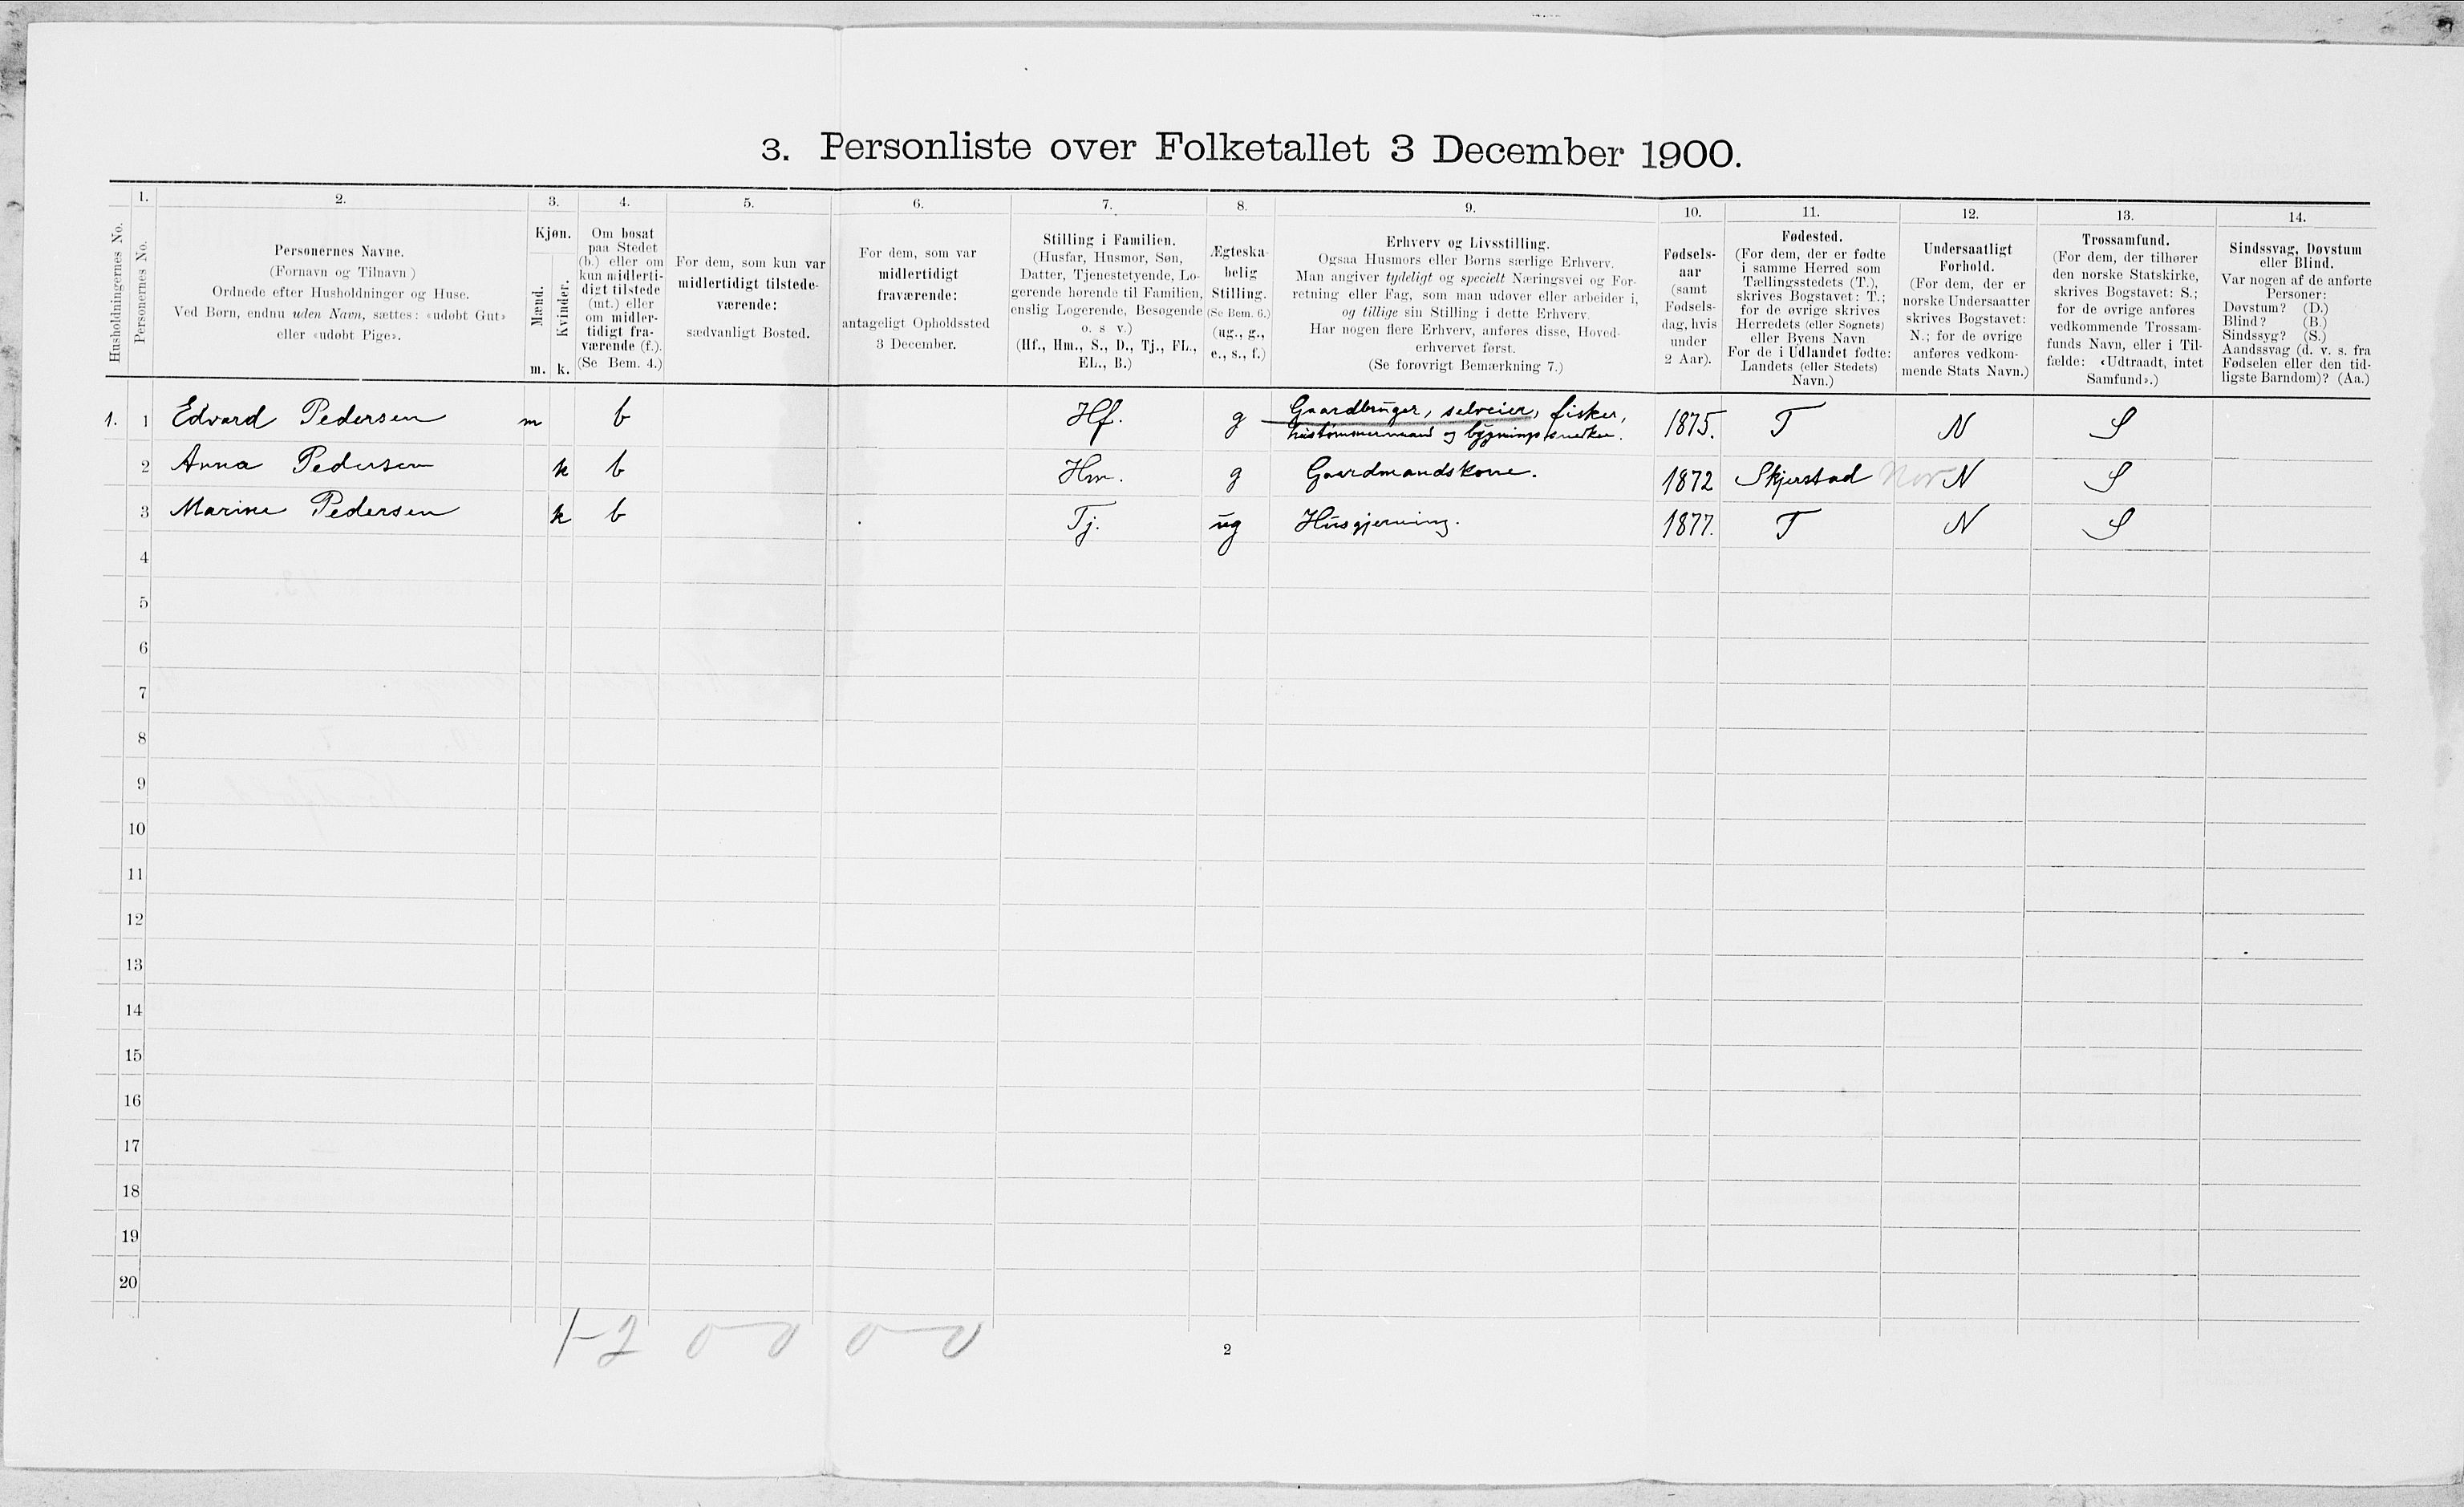 3. Personliste over Folketallet 3 December 1900.
Husholdningernes No.
1.
Personernes No.
2.
Personernes Navne.
(Fornavn og Tilnavn )
Ordnede efter Husholdninger og Huse.
Ved Børn, endnu uden Navn, sættes: «udøbt Gut»
eller «udøbt Pige».
3.
Kjøn.
Mænd.
Kvinder.
m. k.
4.
Om bosat
paa Stedet
(b.) eller om
kun midlerti-
digt tilstede
(mt.) eller
om midler-
tidigt fra-
værende (f.).
(Se Bem. 4.)
5.
For dem, som kun var
midlertidigt tilstede-
værende:
sædvanligt Bosted.
6.
For dem, som var
midlertidigt
fraværende:
antageligt Opholdssted
3 December.
7.
Stilling i Familien.
(Husfar, Husmor, Søn,
Datter, Tjenestetyende, Lo-
gerende hørende til Familien,
enslig Logerende, Besøgende
o. s v.)
(Hf., Hm., S., D., Tj., FL.,
EL., B.)
8.
Ægteska-
belig
Stilling.
(Se Bem. 6.)
(ug., g.,
e., s., f.)
9.
Erhverv og Livsstilling.
Ogsaa Husmors eller Børns særlige Erhverv.
Man angiver tydeligt og specielt Næringsvei og For-
retning eller Fag, som man udøver eller arbeider i,
og tillige sin Stilling i dette Erhverv.
Har nogen flere Erhverv, anføres disse, Hoved-
erhvervet først.
(Se forøvrigt Bemærkning 7.)
10.
Fødsels-
aar
(samt
Fødsels-
dag, hvis
under
2 Aar).
11.
Fødested.
(For dem, der er fødte
i samme Herred som
Tællingsstedets (T.),
skrives Bogstavet: T.;
for de øvrige skrives
Herredets (eller Sognets)
eller Byens Navn
For de i Udlandet fødte:
Landets (eller Stedets)
Navn.)
12.
Undersaatligt
Forhold.
(For dem, der er
norske Undersaatter
skrives Bogstavet:
N.; for de øvrige
anføres vedkom-
mende Stats Navn.)
13.
Trossamfund.
(For dem, der tilhører
den norske Statskirke,
skrives Bogstavet: S.;
for de øvrige anføres
vedkommende Trossam-
funds Navn, eller i Til-
fælde: «Udtraadt, intet
Samfund».)
14.
Sindssvag, Døvstum
eller Blind.
Var nogen af de anførte
Personer:
Døvstum? (D.)
Blind? (B.)
Sindssyg? (S.)
Aandssvag (d. v. s. fra
Fødselen eller den tid-
ligste Barndom)? (Aa.)
1. 1 Edvard Pedersen m b Hf. g Gaardbruger, selveier, fisker,
hustømmermand og bygningssnedker. 1875. T N S
2 Anna Pedersen k b Hm. g Gaardmandskone. 1872 Skjerstad Nor N S
3 Marine Pedersen k b Tj. ug Husgjerning. 1877. T N S
4
5
6
7
8
9
10
11
12
13
14
15
16
17
18
19
20
1-2 0 0 0 0
2